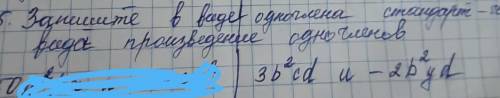 5. Запишите в виде одночлена стандарт-
вида произведение одночленов
3b²cd и - 2b²yd